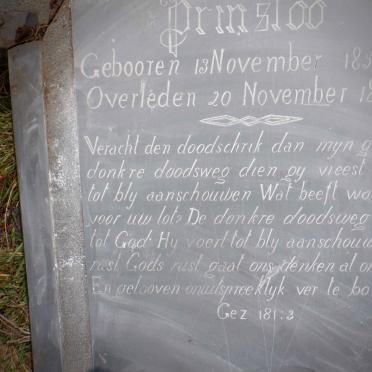 Prinsloo
Gebooren 13 November 18
Overleden 20 November 18
Veracht den doodschrik dan myn
donkre doodsweg dien gy vreest
tot bly aanschouwen Wat heeft
voor uw lot? De donkre doodsweg
tot God. Hy voert tot bly aanschouw
rust Gods rust gaat ons denken al
En gelooven onuitspreeklyk ver te bo
Gez 181:3